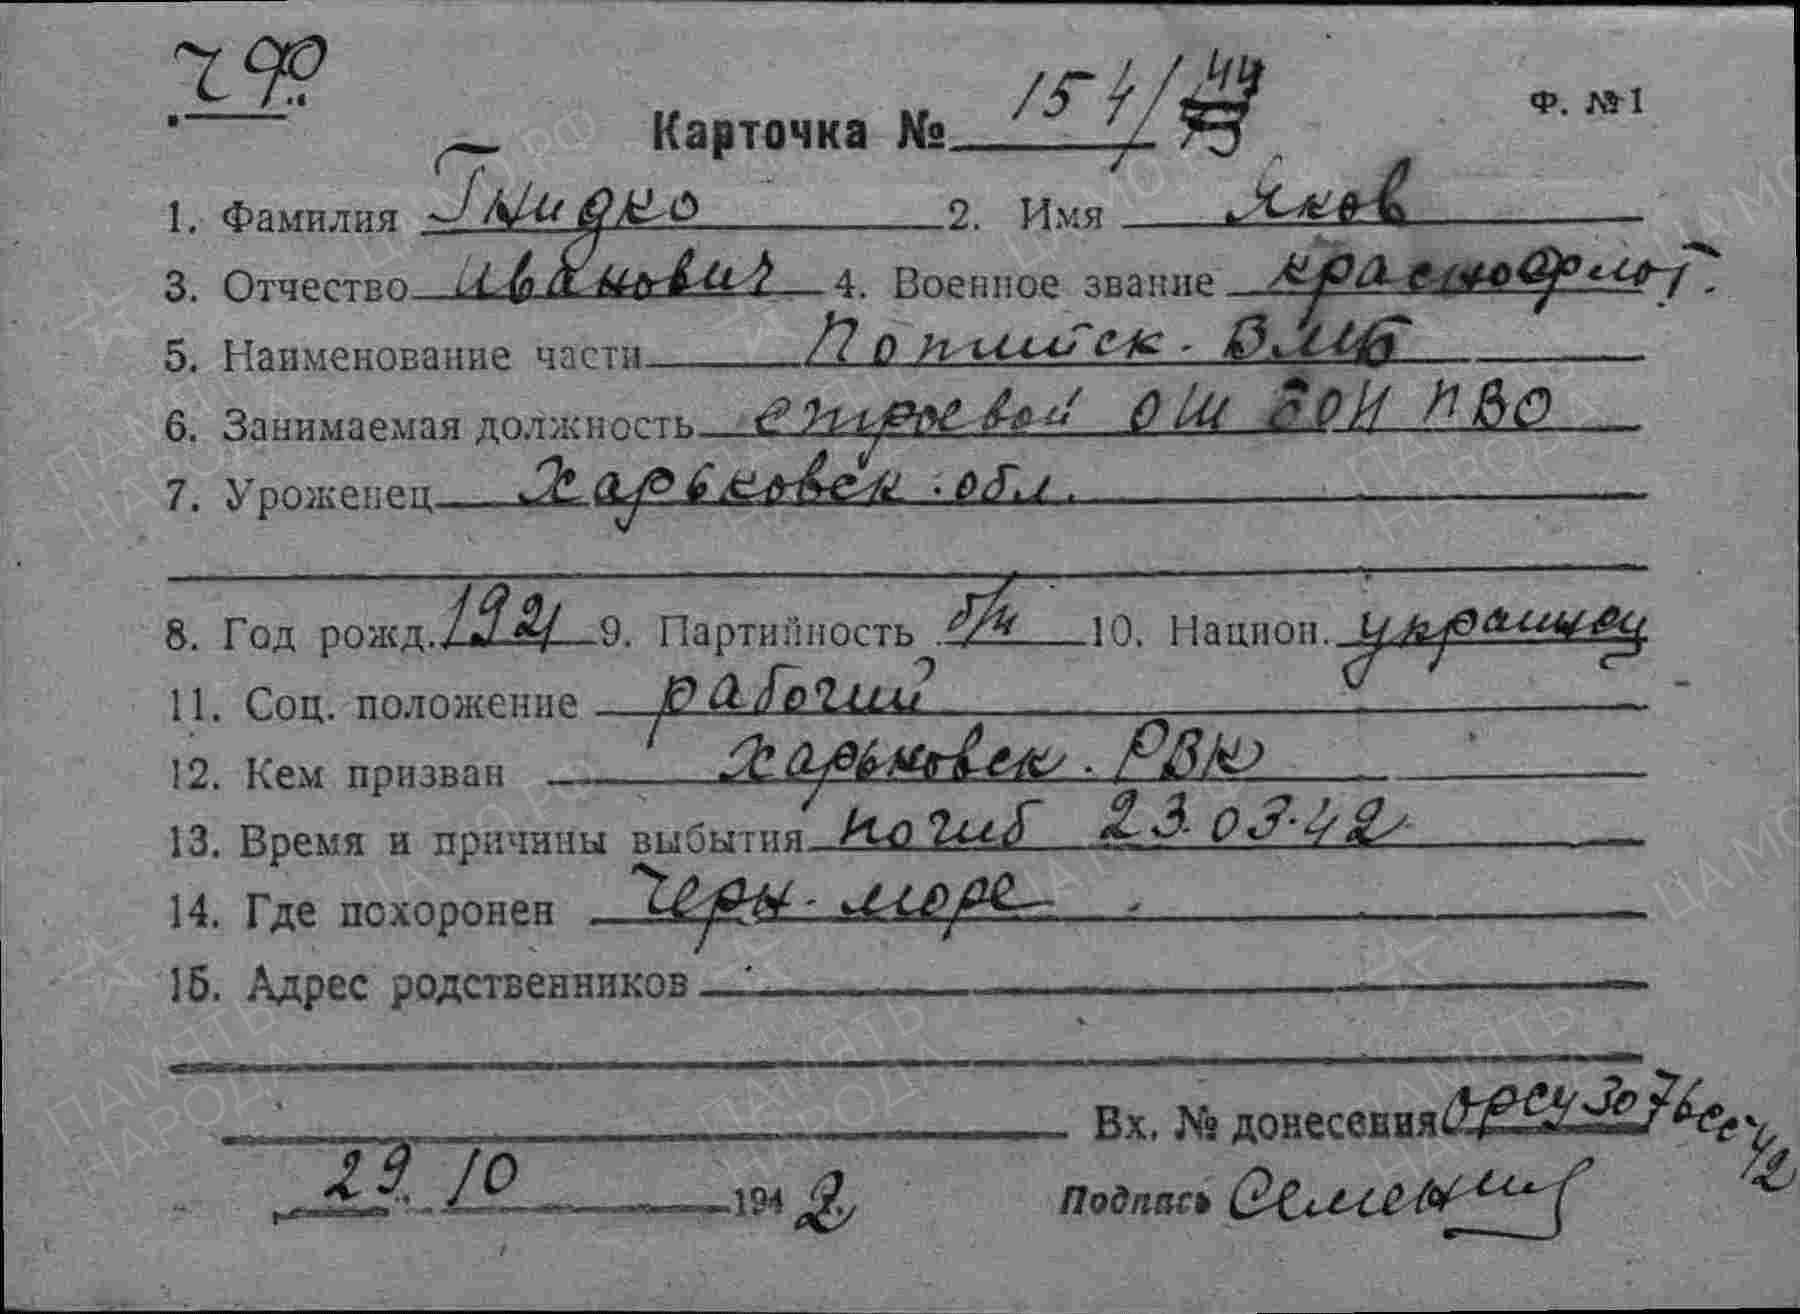 790
Карточка № 154/44
Ф. №1
1. Фамилия Гнидко 2. Имя Яков
3. Отчество Иванович 4. Военное звание краснофлот.
5. Наименование части Потийск. ВМБ
6. Занимаемая должность строевой ОШ ЗОН ПВО
7. Уроженец Харьковск. обл.
8. Год рожд. 1921 9. Партийность б/п 10. Национ. украинец
11. Соц. положение рабочий
12. Кем призван Харьковск. РВК
13. Время и причины выбытия погиб 23.03.42
14. Где похоронен Черн. море
15. Адрес родственников
Вх. № донесения ОРСУ 3076сс 42
29. 10 1942
Подпись
ПАМЯТЬ НАРОДА
ЦАМО.РФ